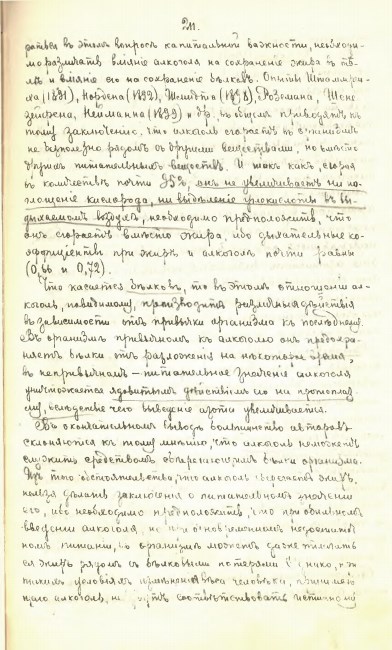 211.
раться въ этомъ вопросѣ капитальной важности, необходи-
мо различать вліяніе алкоголя на сохраненіе жира въ тѣ-
лѣ и вліяніе его на сохраненіе бѣлковъ. Опыты
(1891), Нордена (1892), Шмидта (1898), Роземана, Шоне
Нейманна (1899) и др. въ общемъ приводятъ къ
тому заключенію, что алкоголь сгораетъ въ организмѣ
не безполезно рядомъ съ другими веществами, но вмѣсто
другихъ питательныхъ веществъ. И такъ какъ, сгорая
въ количествѣ почти 95%, онъ не увеличиваетъ ни по-
глощеніе кислорода, ни выдѣленіе углекислоты въ вы-
дыхаемомъ воздухѣ, необходимо предположить, что
онъ сгораетъ вмѣсто жира, ибо дыхательные ко-
эффиціенты при жирѣ и алкоголѣ почти равны
(0,66 и 0,72).
Что касается бѣлковъ, то въ этомъ отношеніи ал-
коголь, повидимому, производитъ различныя дѣйствія
въ зависимости отъ привычки организма къ послѣднему.
Въ организмѣ привычномъ къ алкоголю онъ предохра-
няетъ бѣлки отъ разложенія на нѣкоторое время,
въ непривычномъ – питательное значеніе алкоголя
уничтожается ядовитымъ дѣйствіемъ его на протоплаз
му, вслѣдствіе чего выведеніе азота увеличивается.
Въ окончательномъ выводѣ большинство авторовъ
склоняются къ тому мнѣнію, что алкоголь не можетъ
служить средствомъ сберегающимъ бѣлки организма.
При томъ обстоятельствѣ, что алкоголь сберегаетъ жиръ,
нельзя дѣлать заключенія о питательномъ значеніи
его, ибо необходимо предположить, что при обильномъ
введеніи алкоголя, но при одновременномъ недостаточ
номъ питаніи, въ организмѣ можетъ даже
ся жиръ рядомъ съ бѣлковыми потерями
такихъ условіяхъ вѣса человѣка,
щаго алкоголь, не соотвѣтствовать истинному